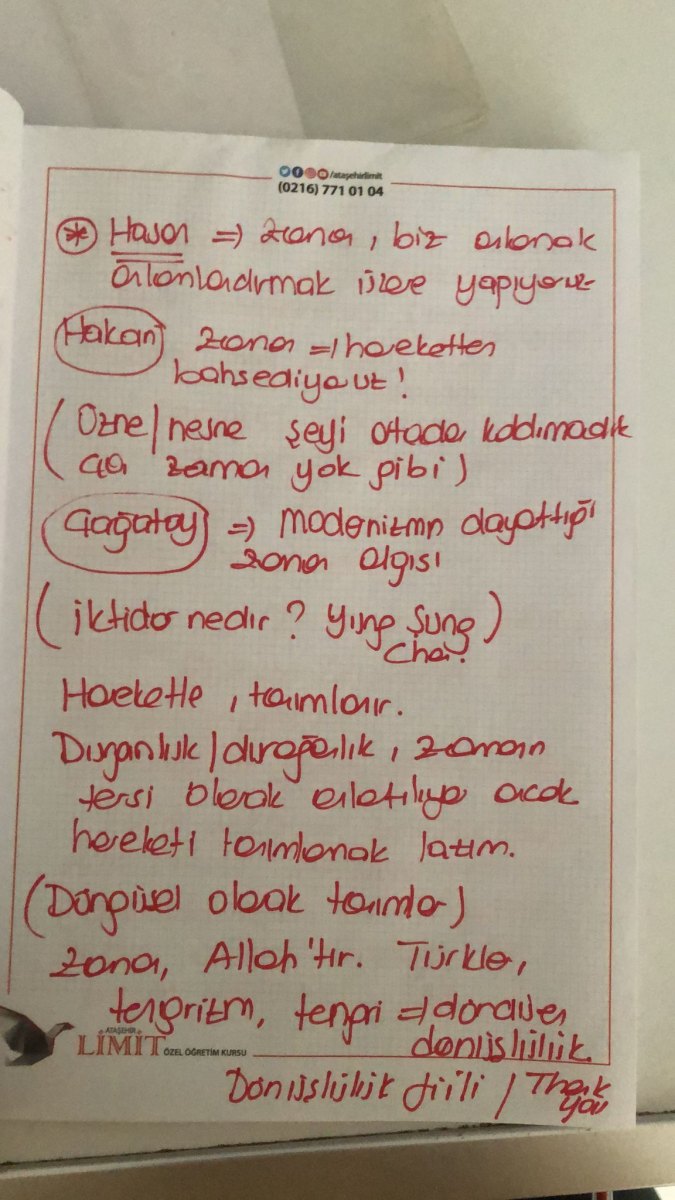 /ataşehirlimit
(0216) 771 01 04
* Hasan => zaman, biz anlamak
anlamlandırmak üzere yapıyoruz
Hakan zaman => hareketten
bahsediyoruz!
(Özne/nesne şeyi ortadan kaldırmadık
zaman yok gibi)
Çağatay => Modernizmin dayattığı
zaman algısı
(iktidar nedir? Yung Şung
Chan?)
Hareketle, tanımlanır.
Durganlık/durağanlık, zamanın
tersi olarak anlatılıyor ancak
hareketi tanımlamak lazım.
(Döngüsel olarak tanımlar)
Zaman, Allah'tır. Türkler,
tengrizm, tengri =>
dönüşlülük.
ATAŞEHİR
LİMİT ÖZEL ÖĞRETİM KURSU
Dönüşlülük fiili / Thank
you